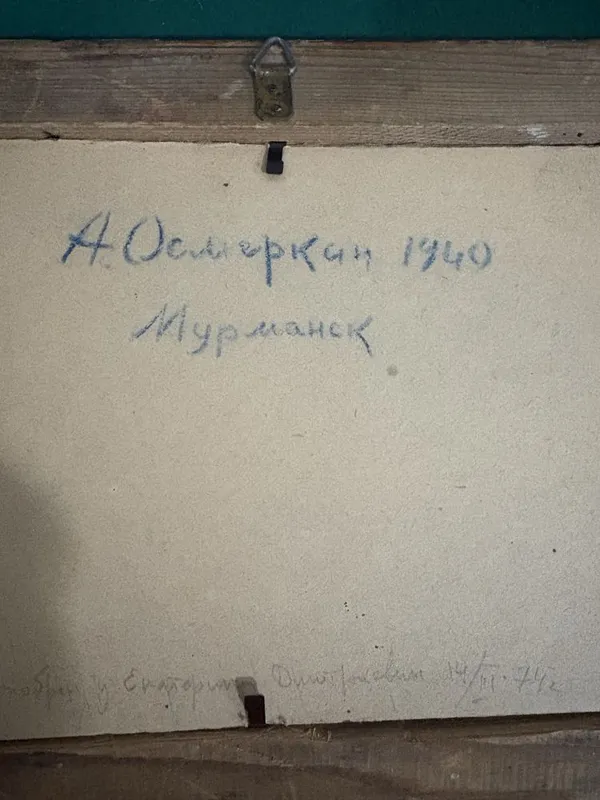 А. Осмеркин 1940
Мурманск
у Екатерины Дмитриевны 14/III-74г